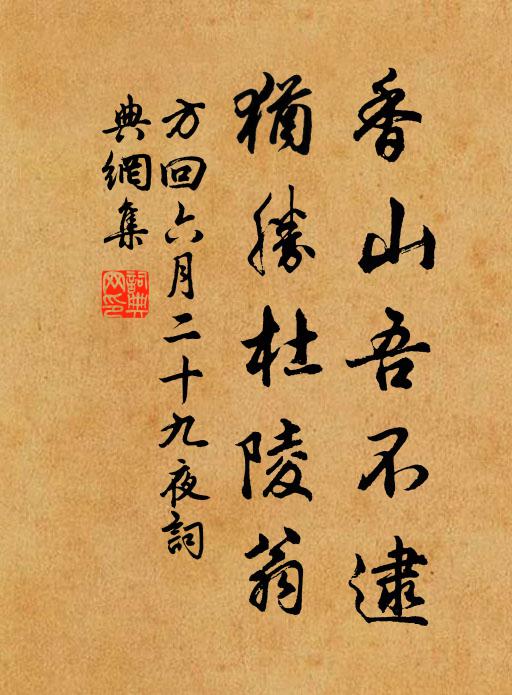 香山吾不逮
猶勝杜陵翁
方回六月二十九夜詞
典網集
詞典網印